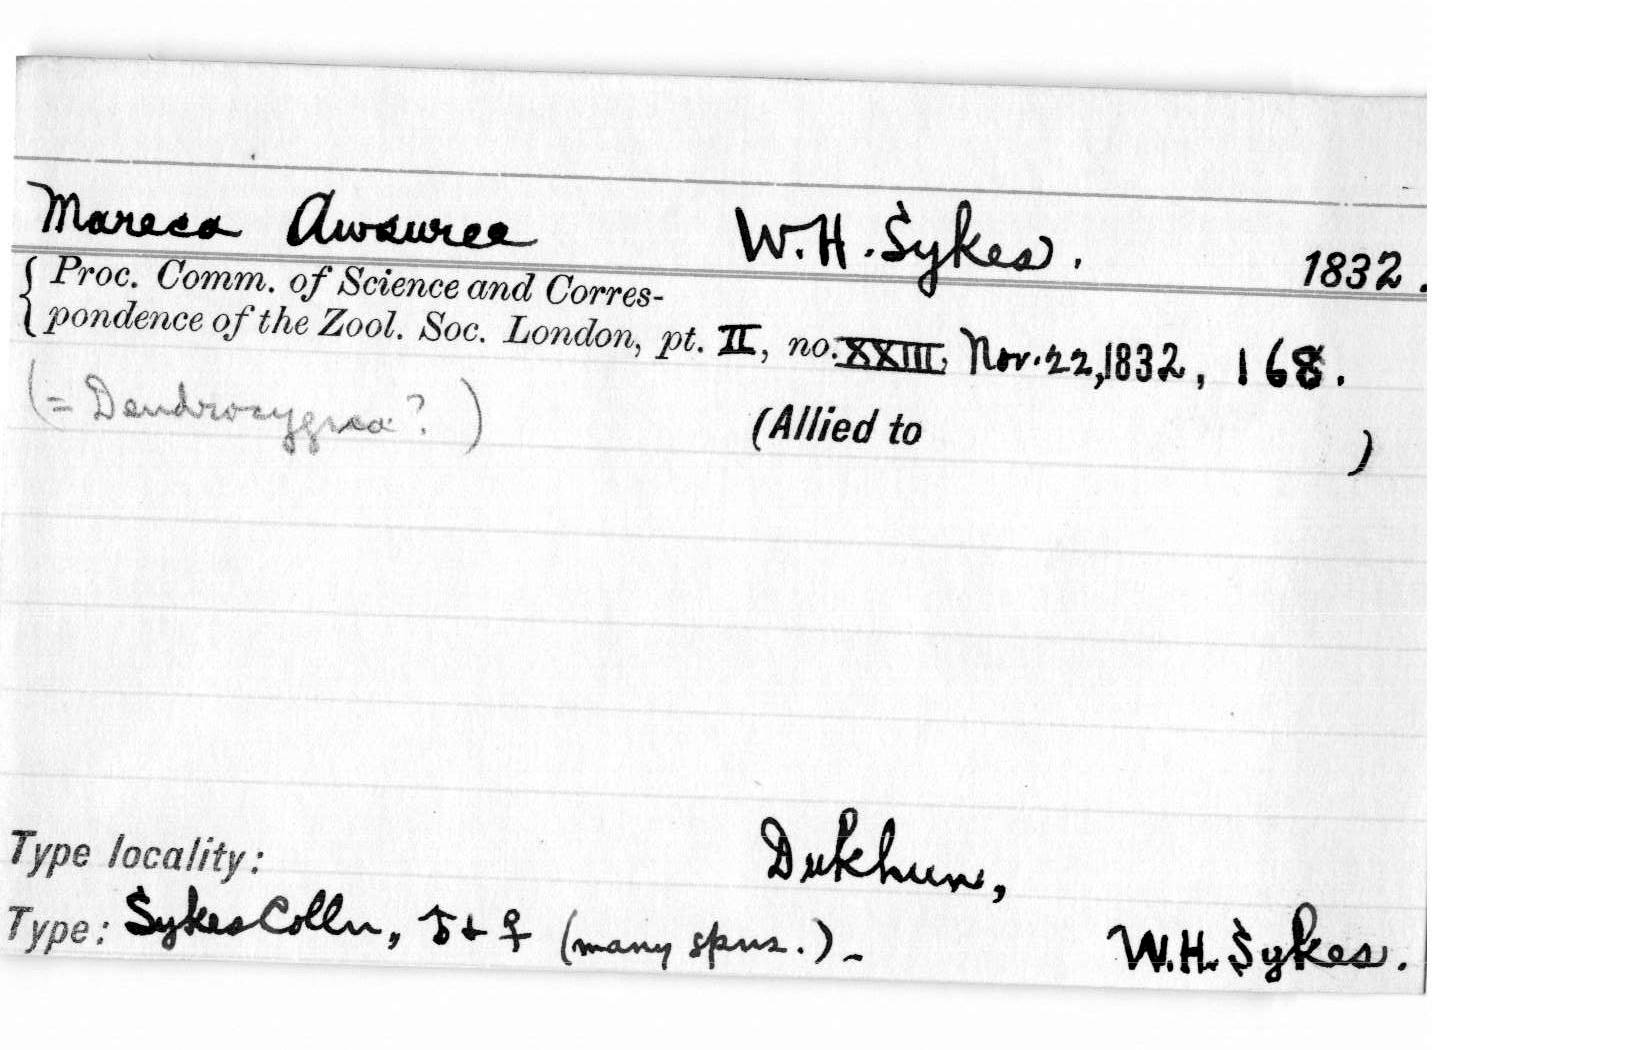 Mareca Awsuree W.H. Sykes. 1832.
{ Proc. Comm. of Science and Corres-
pondence of the Zool. Soc. London, pt. II, no. XXIII, Nov. 22, 1832, 168.
(= Dendrocygna? ) (Allied to )
Type locality: Dukhun,
Type: Sykes Colln, ♂ + ♀ (many spns.) - W.H. Sykes.